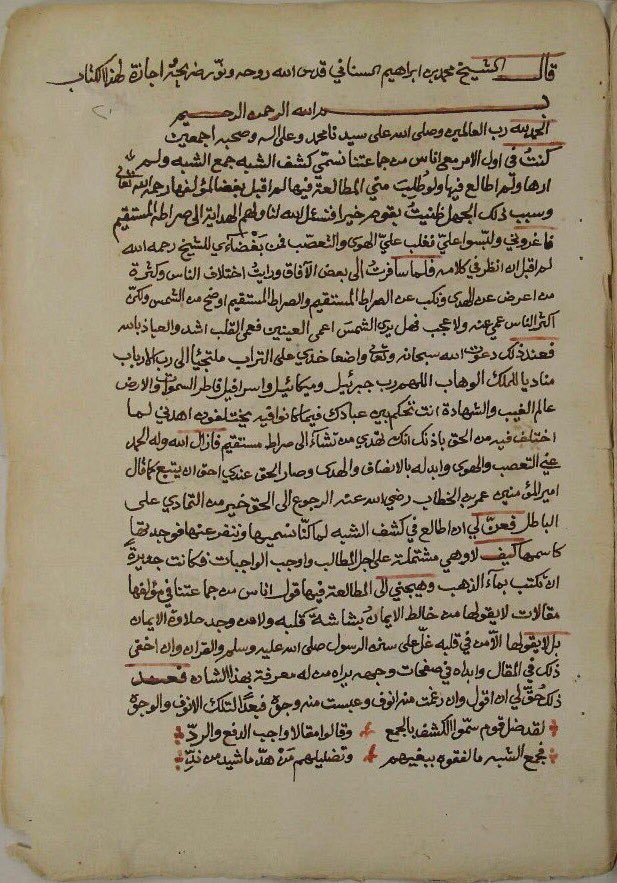 قال الشيخ محمد بن ابراهيم السناني قدس الله روحه ونور ضريحه اجازة لهذا الكتاب
بسم الله الرحمن الرحيم
الحمد لله رب العالمين وصلى الله على سيدنا محمد وعلى اله وصحبه اجمعين
كنت في اول الامر مع اناس من جماعتنا نسمي كشف الشبه جمع الشبه ولم
ارها ولم اطالع فيها ولو طلبت مني المطالعة فيها لم اقبل بغضا لمؤلفها رحمه الله تعالى
وسبب ذلك الجهل ظنيت بقوم خيرا فنسئل الله لنا ولهم الهداية الى صراطه المستقيم
فاغروني ولبسوا علي فغلب علي الهوى والتعصب فمن بغضائي للشيخ رحمه الله
لم اقبل ان انظر في كلامه فلما سافرت الى بعض الآفاق ورايت اختلاف الناس وكثرة
من اعرض عن الهدى ونكب عن الصراط المستقيم والصراط المستقيم اوضح من الشمس ولكن
اكثر الناس عمي عنه ولا عجب فهل يرى الشمس اعمى العينين فعمى القلب اشد والعياذ بالله
فعند ذلك دعوت الله سبحانه وتعالى واضعا خدي على التراب ملتجيا الى رب الارباب
مناديا للملك الوهاب اللهم رب جبرئيل وميكائيل واسرافيل فاطر السموات والارض
عالم الغيب والشهادة انت تحكم بين عبادك فيما كانوا فيه يختلفون اهدني لما
اختلف فيه من الحق باذنك انك تهدي من تشاء الى صراط مستقيم فازال الله وله الحمد
عني التعصب والهوى وابدله بالانصاف والهدى وصار الحق عندي احق ان يتبع كما قال
امير المؤمنين عمر بن الخطاب رضي الله عنه الرجوع الى الحق خير من التمادي على
الباطل فعن لي ان اطالع في كشف الشبه لما كنا نسميها وننفر عنها فوجدتها
كاسمها كيف لا وهي مشتملة على اجل المطالب واوجب الواجبات فكانت جديرة
ان تكتب بماء الذهب وهيجني الى المطالعة فيها قول اناس من جماعتنا في مؤلفها
مقالات لا يقولها من خالط الايمان بشاشة قلبه ولا من وجد حلاوة الايمان
بل لا يقولها الا من في قلبه غل على سنة الرسول صلى الله عليه وسلم والقران وان اخفى
ذلك في المقال وابداه في صفحات وجهه يراه من له معرفة بهذا الشان فعند
ذلك حق لي ان اقول وان رغمت منه انوف وعبست منه وجوه فبعدا لتلك الانوف والوجوه
لقد ضل قوم سموا الكشف بالجمع وقالوا مقالا واجب الدفع والرد
فجمع الشبه ما لفقوه ببغيهم وتضليلهم من هد ما شيد من ند